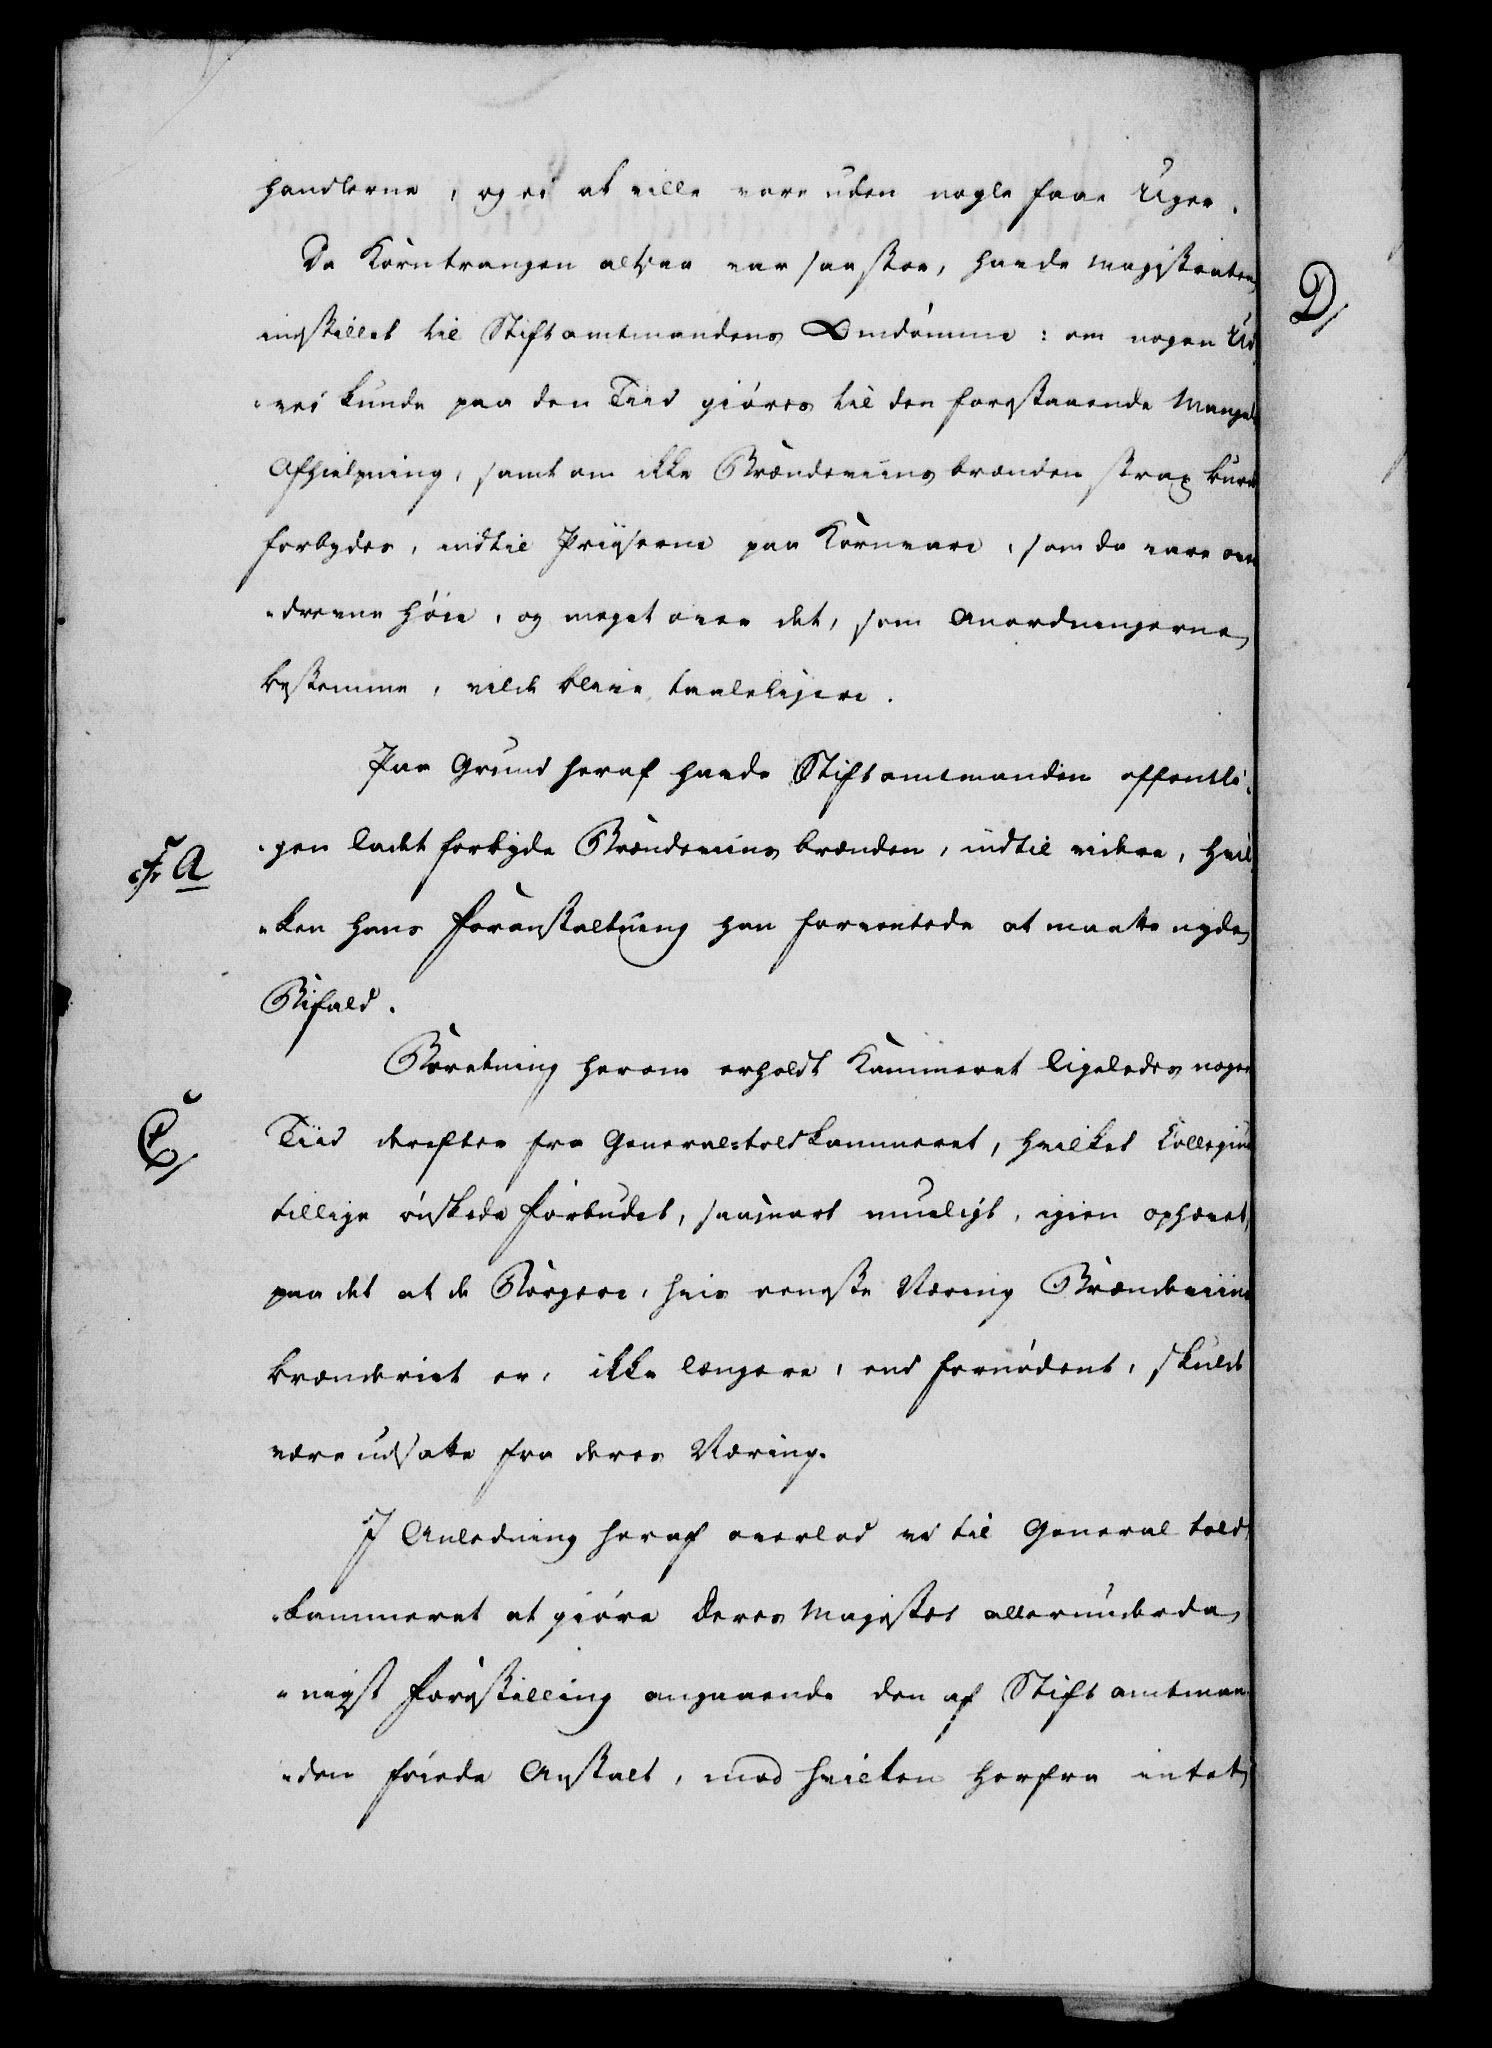 handlerne, og ei at ville vare uden nogle faae Uger.
Da Korntrangen altsaa var saa stor, havde Magistraten
indstillet til Stiftamtmandens Omdømme: om nogen Ud¬
-vei kunde paa den Tiid giøres til den forestaaende Mangels
Afhielpning, samt om ikke Brændeviins brænden strax burde
forbydes, indtil Priiserne paa Kornvare, som da vare over
-drevne høie, og meget over det, som Anordningerne
bestemme, vilde blive taaleligere.
Paa Grund heraf havde Stiftamtmanden offentli¬
cfr A
-gen ladet forbyde Brændeviins brænden, indtil videre, hvil¬
-ken hans Foranstaltning han forventede at maatte nyde
Bifald.
Beretning herom erholdt Kammeret ligeledes nogen
C
Tiid derefter fra Generaltoldkammeret, hvilket Collegium
tillige ønskede Forbudet, saasnart mueligt, igien ophævet,
paa det at de Borgere, hvis eeneste Næring Brændeviins
brænderiet er, ikke længere, end fornødent, skulde
være udsatte fra deres Næring.
I Anledning heraf overlod vi til General told
-kammeret at giøre Deres Majestæt allerunderda
-nigst Forestilling angaaende den af Stiftamtman
-den føiede Anstalt, mod hvilken herfra intet
D